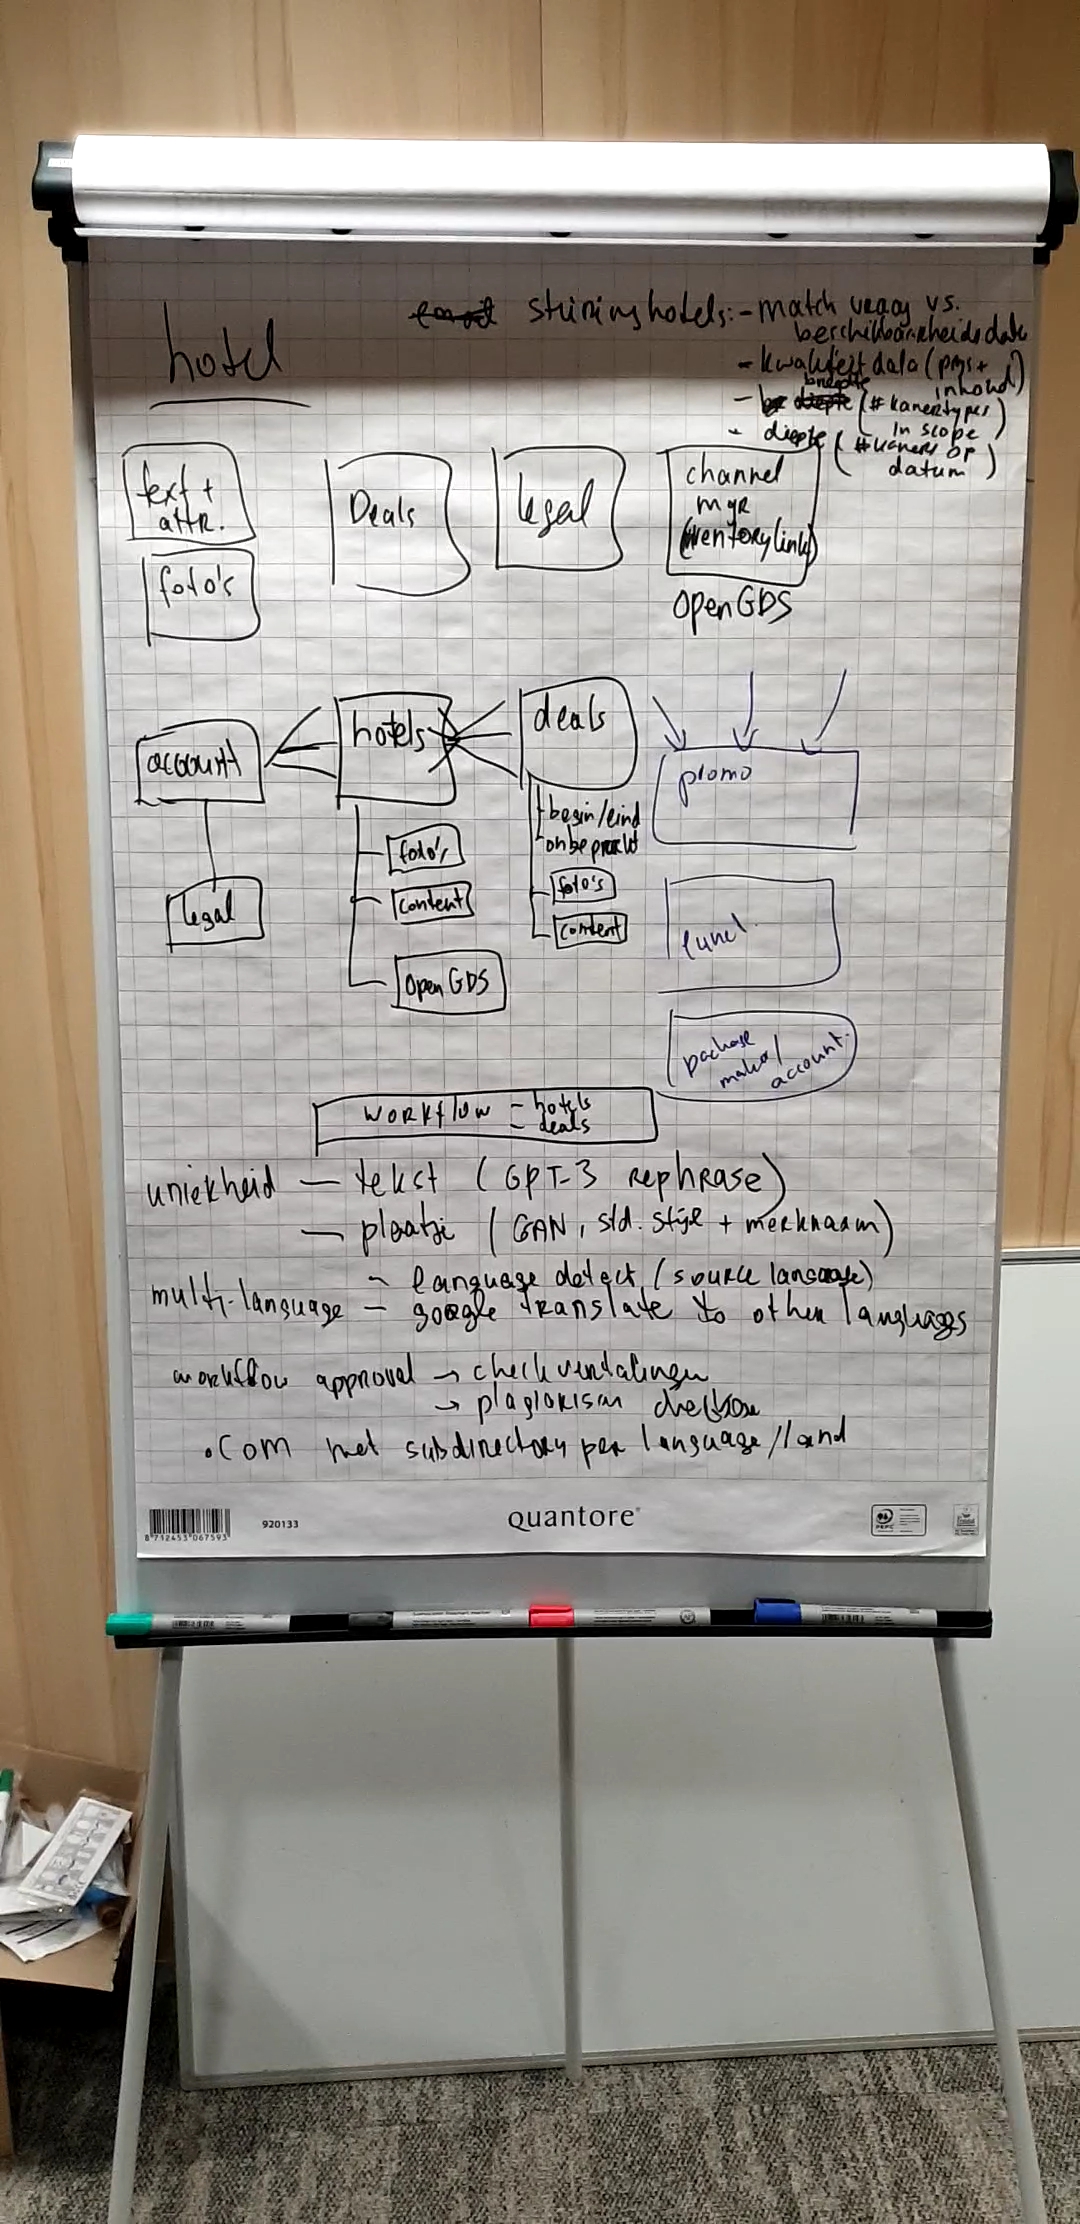 hotel
sturing hotels: - match vraag vs.
beschikbaarheidsdata
- kwaliteit data (prijs +
inhoud)
- breedte (# kamertypes
in scope
- diepte (# kamers op
datum)
text +
attr.
foto's
Deals
legal
channel
mgr
(inventory link)
OpenGDS
account
legal
hotels
foto's
content
OpenGDS
deals
begin/eind
onbeperkt
foto's
content
promo
funnel
package
maker/
account.
workflow - hotels
- deals
uniekheid — tekst (GPT-3 rephrase)
— plaatje (GAN, std. stijl + merknaam)
multi-language - language detect (source language)
- google translate to other languages
workflow approval → check vertalingen
→ plagiarism
.com met subdirectory per language/land
8 712453 067593
920133
Quantore
PEFC